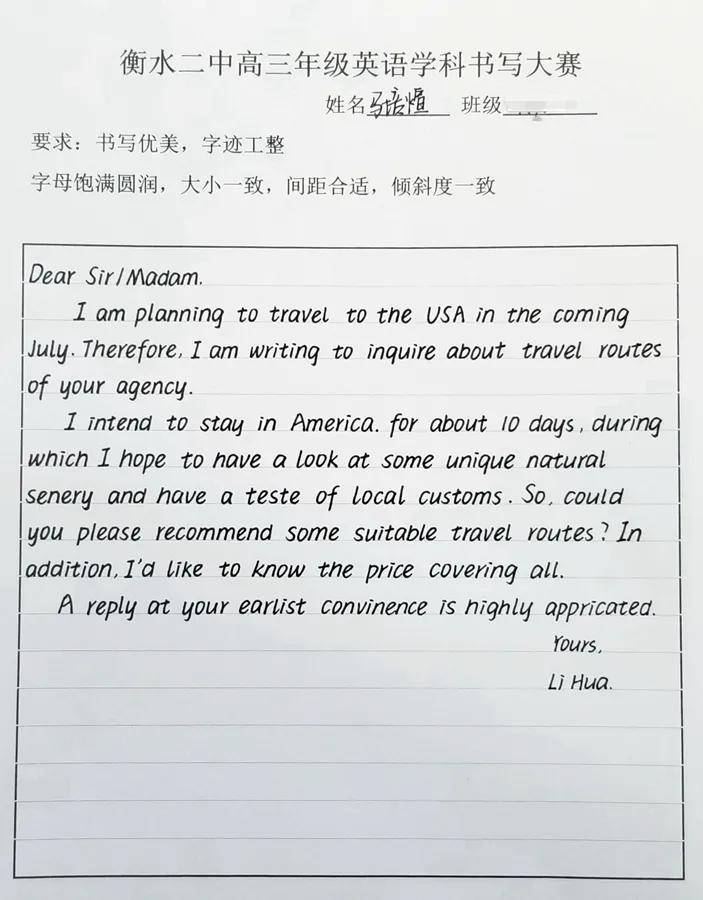 衡水二中高三年级英语学科书写大赛
姓名马培煊 班级
要求：书写优美，字迹工整
字母饱满圆润，大小一致，间距合适，倾斜度一致
Dear Sir/Madam.
I am planning to travel to the USA in the coming
July. Therefore, I am writing to inquire about travel routes
of your agency.
I intend to stay in America. for about 10 days, during
which I hope to have a look at some unique natural
senery and have a teste of local customs. So, could
you please recommend some suitable travel routes? In
addition, I'd like to know the price covering all.
A reply at your earlist convinence is highly appricated.
Yours,
Li Hua.